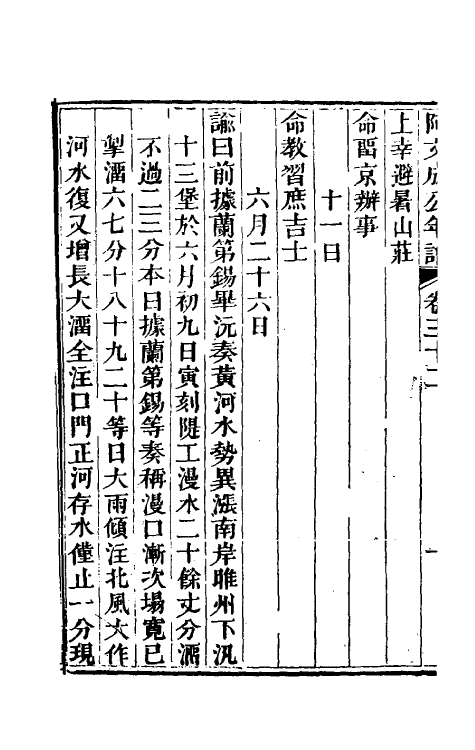 阿文成公年譜 卷三十二 一
上幸避暑山莊
命畱京辦事
十一日
命教習庶吉士
六月二十六日
諭曰前據蘭第錫畢沅奏黃河水勢異漲南岸睢州下汛
十三堡於六月初九日寅刻隄工漫水二十餘丈分溜
不過二三分本日據蘭第錫等奏稱漫口漸次塌寬已
掣溜六七分十八十九二十等日大雨傾注北風大作
河水復又增長大溜全注口門正河存水僅止一分現